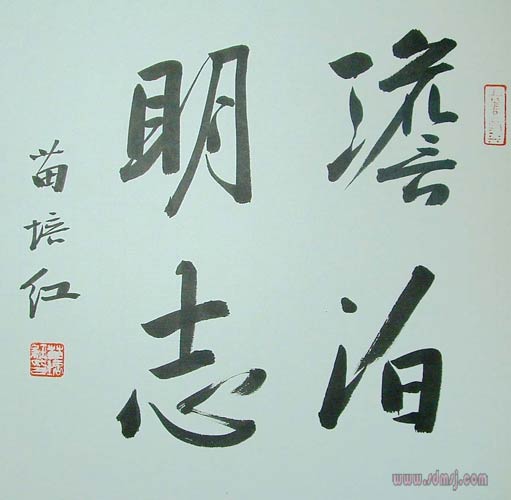 澹泊
明志
苗培红
www.sdmsj.com